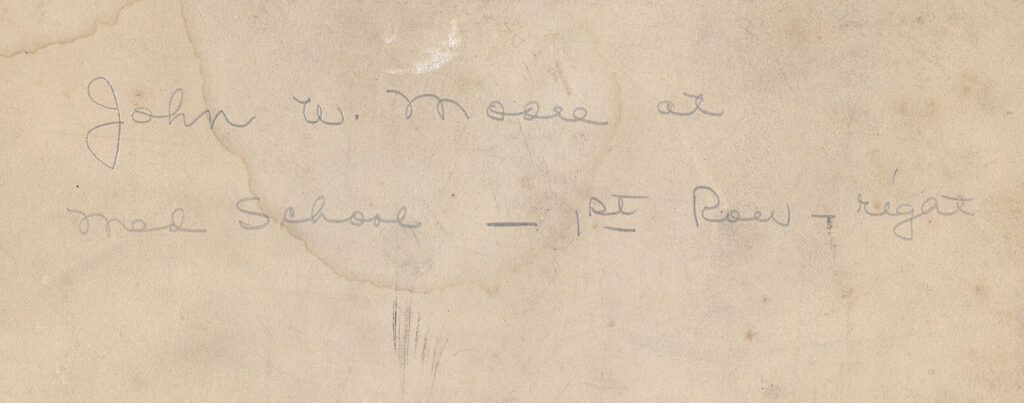 John W. Moore at
Med School — 1st Row - right